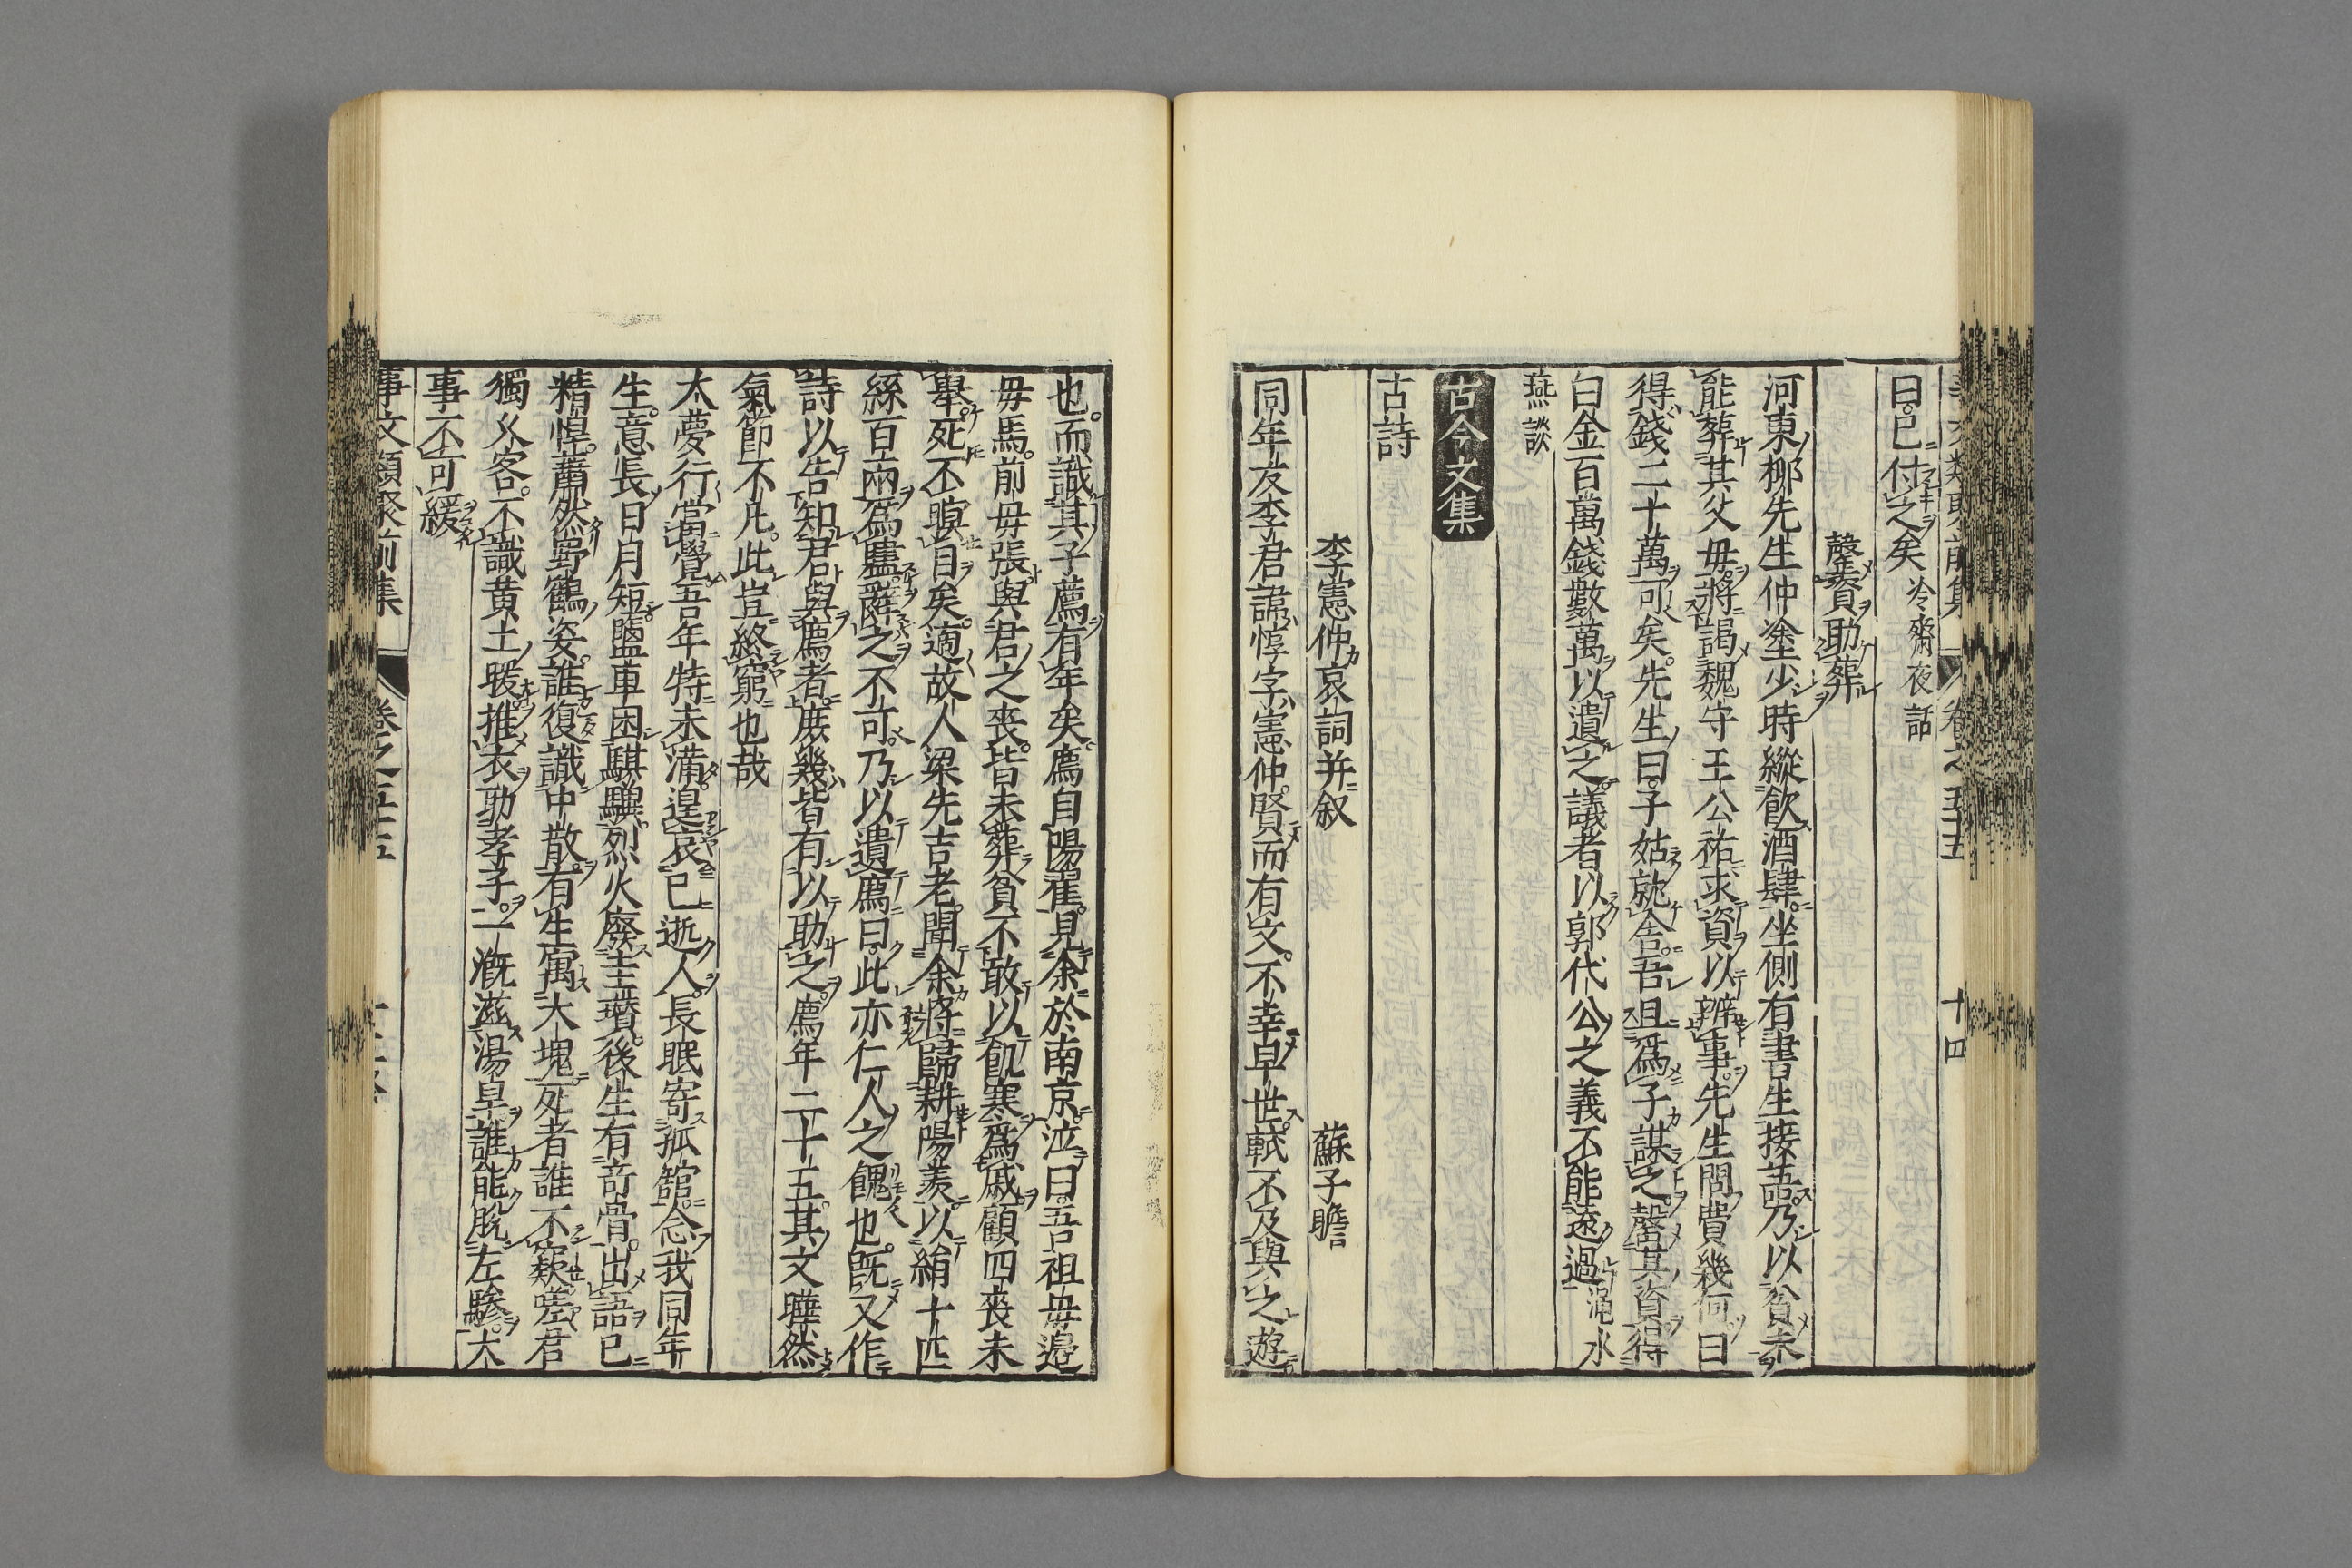 事文類聚前集 卷之五十五 十四
曰已付之矣 冷齋夜話
罄資助葬
河東柳先生仲塗少時縱飲酒肆坐側有書生接語乃以貧未
能葬其父毋將謁魏守王公祐求資以辦事先生問費幾何曰
得錢二十萬可矣先生曰子姑就舍吾且爲子謀之罄其資得
白金百萬錢數萬以遺之議者以郭代公之義不能遠過 澠水
燕談
古今文集
古詩
李憲仲哀詞并叙 蘇子瞻
同年友李君諱惇字憲仲賢而有文不幸早世軾不及與之遊
也而識其子廌有年矣廌自陽翟見余於南京泣曰吾祖毋邉
毋馬前毋張與君之喪皆未葬貧不敢以飢寒爲戚顧四喪未
舉死不瞑目矣適故人梁先吉老聞余將歸耕陽羨以絹十匹
絲百兩爲贐辭之不可乃以遺廌曰此亦仁人之餽也既又作
詩以告知君與廌者庶幾皆有以助之廌年二十五其文曄然
氣節不凡此豈終窮也哉
大夢行當覺百年特未滿遑哀已逝人長眠寄孤舘念我同年
生意長日月短鹽車困騏驥烈火廢圭瓚後生有竒骨出語已
精悍蕭然野鶴姿誰復識中散有生寓大塊死者誰不窾嗟君
獨乆客不識黄土暖推衣助孝子一漑滋湯旱誰能脫左驂大
事不可緩
事文類聚前集 卷之五十五